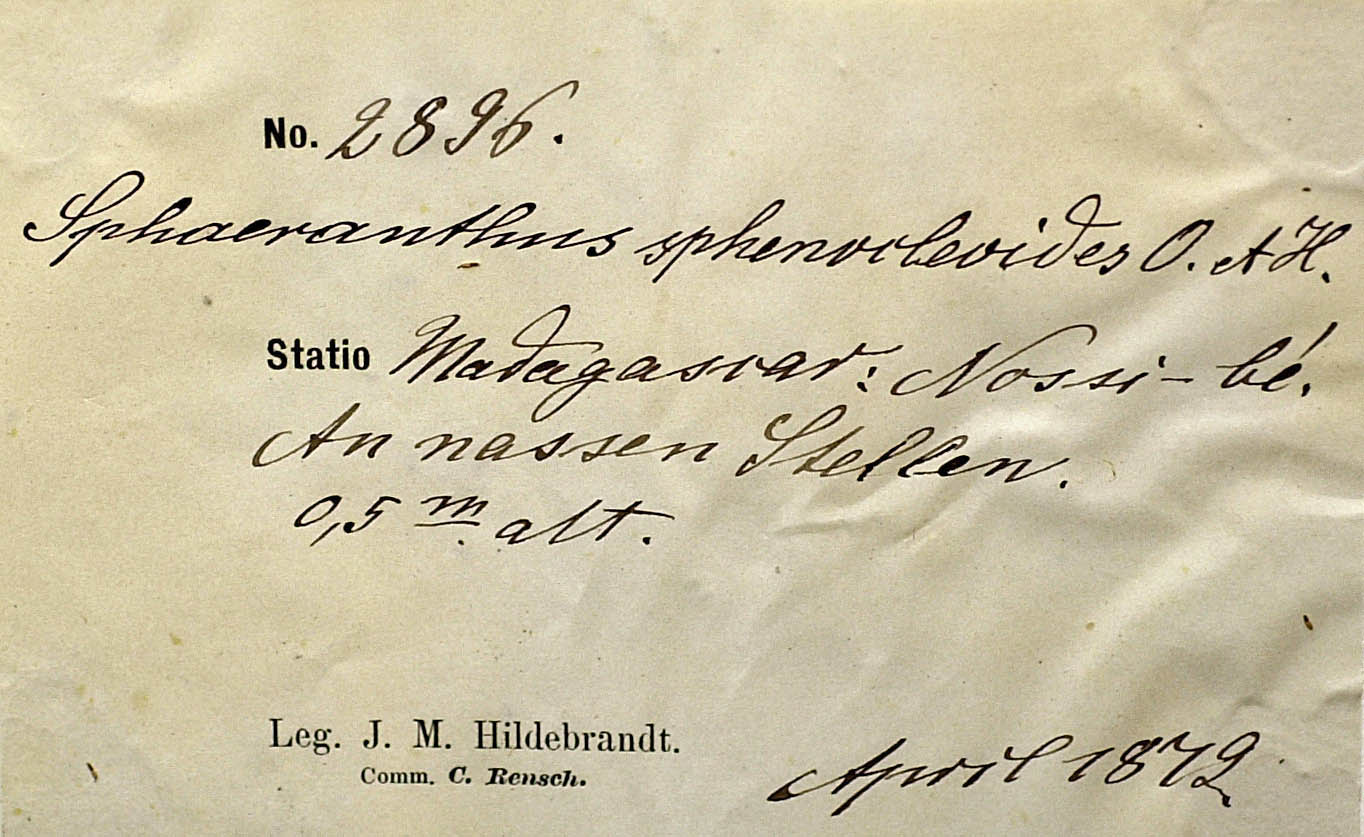 No. 2896.
Sphaeranthus sphenocleoides O. et H.
Statio Madagascar: Nossi-bé.
An nassen Stellen.
0,5 m alt.
Leg. J. M. Hildebrandt.
Comm. C. Rensch.
April 1879.